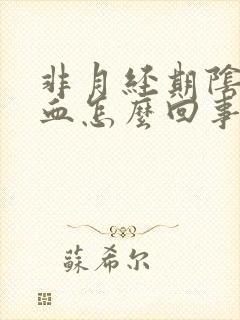 非月經期陰
血怎麼回事
蘇希尔